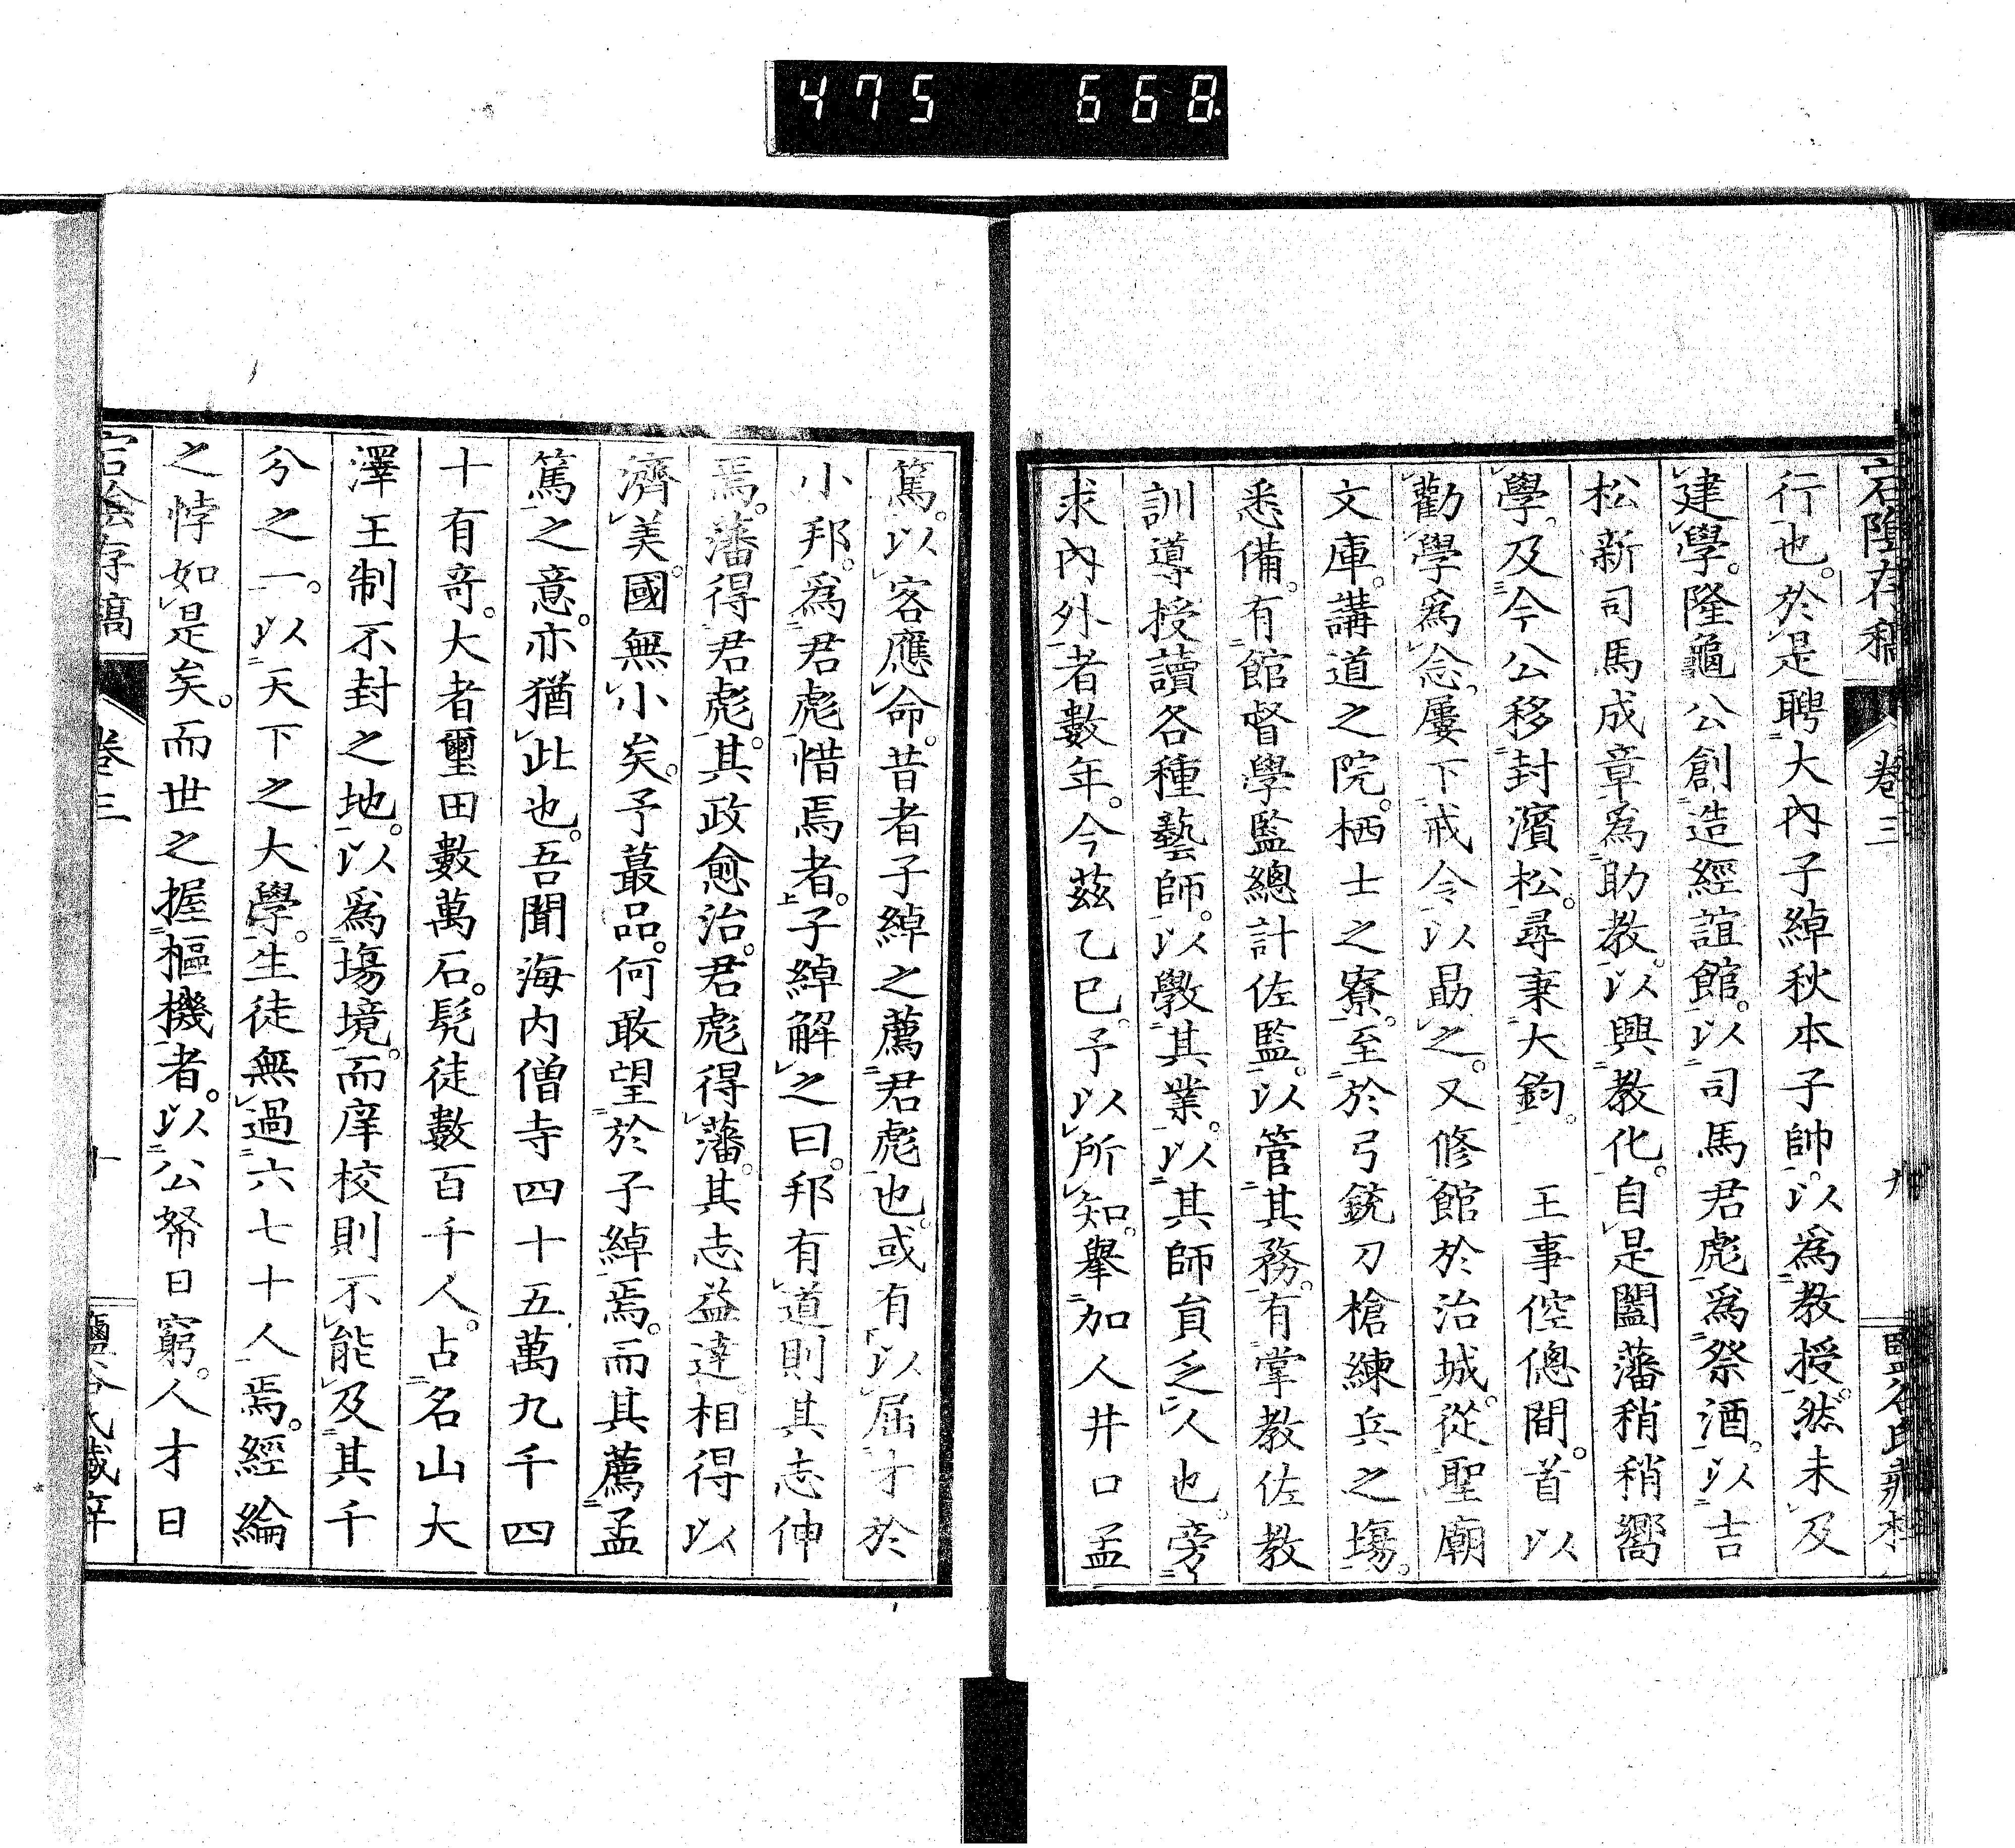 475 668
宕陰存稿 卷三 九 鹽谷氏藏梓
行也。於是聘大內子綽秋本子帥。以爲教授。然未及
建學。隆龜公創造經誼館。以司馬君彪爲祭酒。以吉
松新司馬成章爲助教。以興教化。自是闔藩稍稍嚮
學。及今公移封濱松。尋秉大鈞。 王事倥傯間。首以
勸學爲念。屢下戒令以勗之。又修館於治城。從聖廟
文庫。講道之院。栖士之寮。至於弓銃刀槍練兵之塲。
悉備。有館督學監總計佐監。以管其務。有掌教佐教
訓導授讀各種藝師。以斆其業。以其師員乏人也。旁
求內外者數年。今茲乙巳。予以所知。舉加人井口孟
篤。以客應命。昔者子綽之薦君彪也。或有以屈才於
小邦。爲君彪惜焉者。子綽解之曰。邦有道則其志伸
焉。藩得君彪。其政愈治。君彪得藩。其志益達。相得以
濟美。國無小矣。予蕞品。何敢望於子綽焉。而其薦孟
篤之意。亦猶此也。吾聞海内僧寺四十五萬九千四
十有奇。大者壐田數萬石。髡徒數百千人。占名山大
澤王制不封之地。以爲塲境。而庠校則不能及其千
分之一。以天下之大學。生徒無過六七十人焉。經綸
之悖如是矣。而世之握樞機者。以公帑日窮。人才日
宕陰存稿 卷三 十 鹽谷氏藏梓